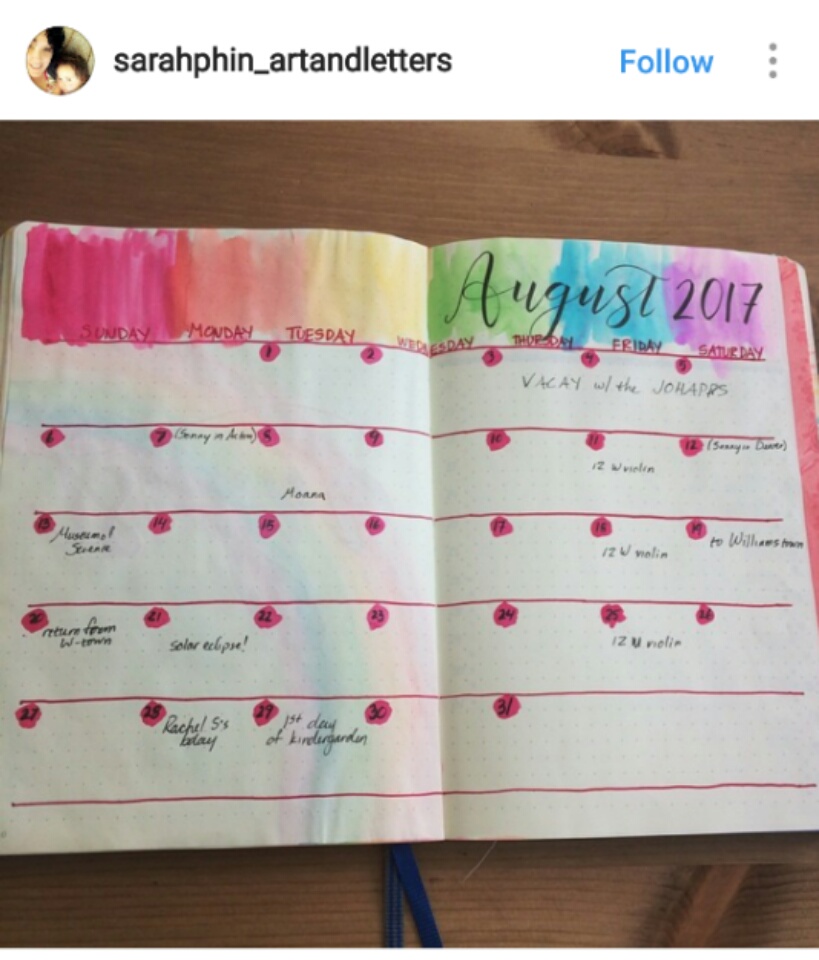 sarahphin_artandletters
Follow
August 2017
SUNDAY MONDAY TUESDAY WEDNESDAY THURSDAY FRIDAY SATURDAY
1 2 3 4 5
VACAY w/ the
6 7 (Sonny in Acton) 8 9 10 11 12 (Sonny in
12 W violin
Moana
13 14 15 16 17 18 19
Museum of
Science
to Williamstown
12 W violin
20 21 22 23 24 25 26
return from
W-town
solar eclipse!
12 W violin
27 28 29 30 31
Rachel S's
bday
1st day
of kindergarden